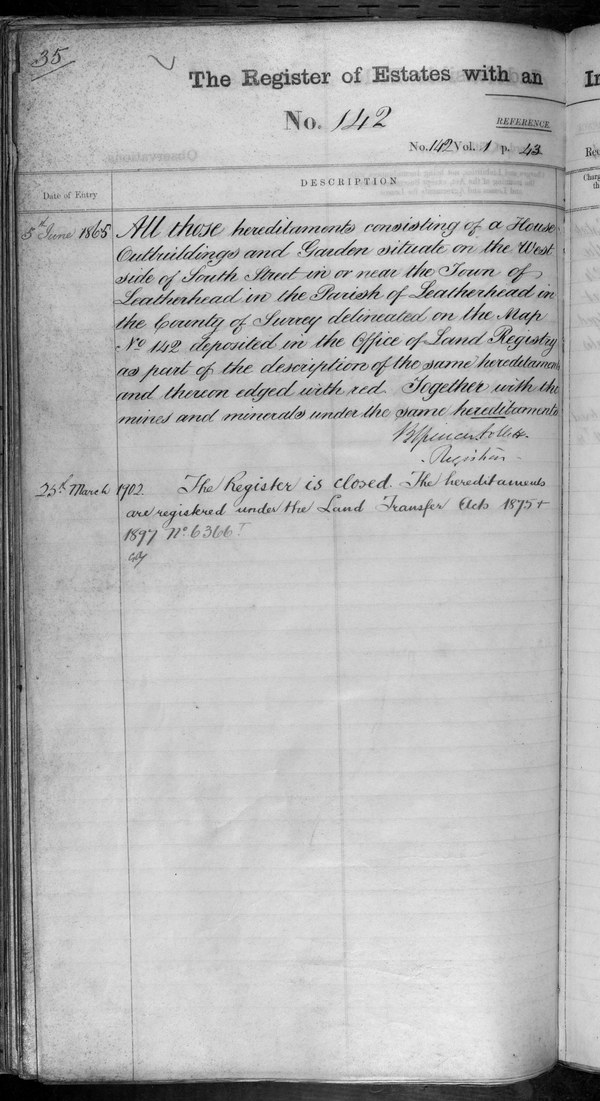 35
The Register of Estates with an
No. 142
REFERENCE
No. 142 Vol. 1 p. 43
DESCRIPTION
Date of Entry
5th June 1865 All those hereditaments consisting of a House
Outbuildings and Garden situate on the West
side of South Street in or near the Town of
Leatherhead in the Parish of Leatherhead in
the County of Surrey delineated on the Map
No 142 deposited in the Office of Land Registry
as part of the description of the same hereditaments
and thereon edged with red Together with the
mines and minerals under the same hereditaments
Registrar
25th March 1902. The Register is closed. The hereditaments
are registered under the Land Transfer Acts 1875 &
1897 No. 6366
In